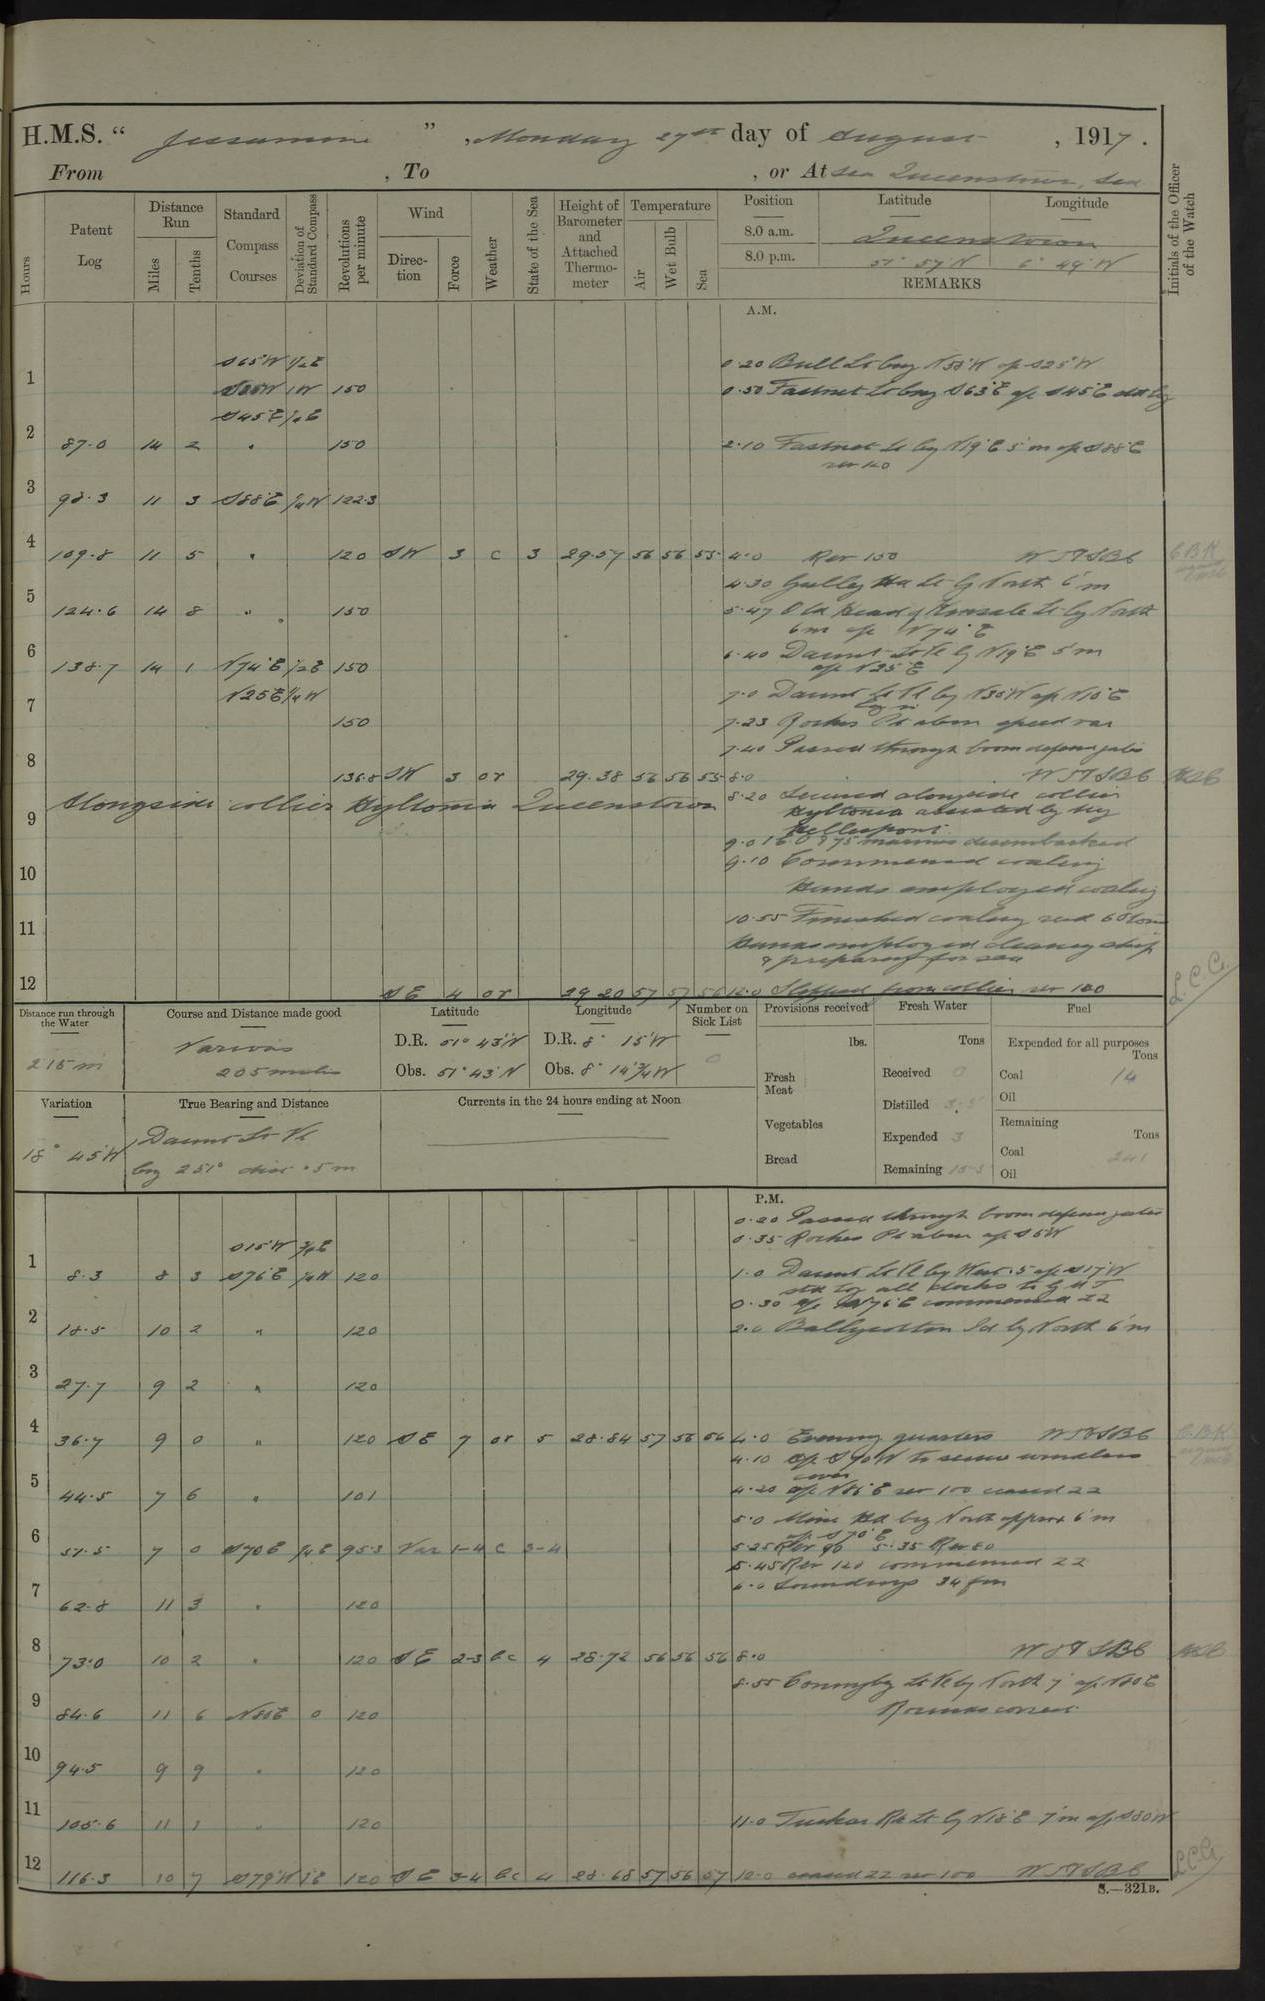 H.M.S. " Jessamine ", Monday 27th day of August, 1917.
From , To , or At Sea Queenstown, Sea
Hours Patent Log Distance Run Miles Tenths Standard Compass Courses Deviation of Standard Compass Revolutions per minute Wind Direction Force Weather State of the Sea Height of Barometer and Attached Thermometer Temperature Air Wet Bulb Sea Position Latitude Longitude Initials of the Officer of the Watch
8.0 a.m. Queenstown
8.0 p.m. 51° 57' N 6° 49' W
REMARKS
A.M.
S65°W 1/2E 0.20 Bull Lt brg N53°W a/c S25°W
1 1W 150 0.50 Fastnet Lt brg S63°E a/c S45°E
S45°E
2 87.0 14 2 " 150 2.10 Fastnet Lt brg N19°E 5'm a/c S88°E
rev 120
3 98.3 11 3 S88°E 1/4W 122.3
4 109.8 11 5 " 120 SW 3 c 3 29.57 56 56 55 4.0 Rev 150
4.30 Galley Hd Lt brg North 6'm
5 124.6 14 8 " 150 5.47 Old Head of Kinsale Lt brg North
6m a/c N74°E
6 138.7 14 1 N74°E 1/2E 150 6.40 Daunt Lt Vl brg N19°E 5'm
a/c N25°E
N25°E 1/4W 7.0 Daunt Lt Vl brg N35°W a/c N10°E
7 150 7.23 Roches Pt abeam speed var
7.40 Passed through boom defence gates
8 136.8 SW 3 or 29.38 56 56 55 8.0
Alongside collier Hyltonia Queenstown
8.20 Secured alongside collier
9 Hyltonia assisted by tug
Hellespont
9.0 marines disembarked
9.10 Commenced coaling
10 Hands employed coaling
11 10.55 Finished coaling recd 65 tons
Hands employed cleaning ship
& preparing for sea
12 SE 4 or 29.20 57 57 56 12.0 Slipped from collier rev 120
L.C.C.
Distance run through the Water Course and Distance made good Latitude Longitude Number on Sick List Provisions received Fresh Water Fuel
215 m Various 205 miles D.R. 51° 43' N D.R. 8° 15' W 0
Obs. 51° 43' N Obs. 8° 14 3/4' W
lbs. Tons Expended for all purposes Tons
Fresh Meat Received 0 Coal 14
Distilled Oil
Variation True Bearing and Distance Currents in the 24 hours ending at Noon
18° 45' W Daunt Lt Vl
brg 251° dist .5 m
Vegetables Expended 3 Remaining Tons
Bread Coal 241
Remaining Oil
P.M.
0.20 Passed through boom defence gates
S15°W 0.35 Roches Pt abeam a/c S5°W
1 8.3 8 3 S76°E 1/4W 120 1.0 Daunt Lt Vl brg West .5 a/c S17°W
all clocks to G.M.T
0.30 a/c S76°E commenced ZZ
2 18.5 10 2 " 120 2.0 Ballycotton Id brg North 6'm
3 27.7 9 2 " 120
4 36.7 9 0 " 120 SE 7 or 5 28.84 57 56 56 4.0 Evening quarters
4.10 a/c S70W to secure windlass
cover
5 44.5 7 6 " 101 4.20 a/c N86°E rev 100 ceased ZZ
5.0 Mine Hd brg North approx 6'm
a/c S70°E
6 51.5 7 0 S70E 1/4E 95.3 Var 1-4 c 3-4 5.25 Rev 90 5.35 Rev 80
5.45 Rev 120 commenced ZZ
6.0 Soundings 34 fms
7 62.8 11 3 " 120
8 73.0 10 2 " 120 SE 2-3 bc 4 28.72 56 56 56 8.0
8.55 Coningbeg Lt Vl brg North 7' a/c N80°E
9 84.6 11 6 N80E 0 120 Rounds correct
10 94.5 9 9 " 120
11 105.6 11 1 " 120 11.0 Tuskar Rk Lt brg N18°E 7'm a/c S80W
12 116.3 10 7 S79°W 1E 120 SE 3-4 bc 4 28.68 57 56 57 12.0 ceased ZZ rev 100
L.C.C.
S.—321B.